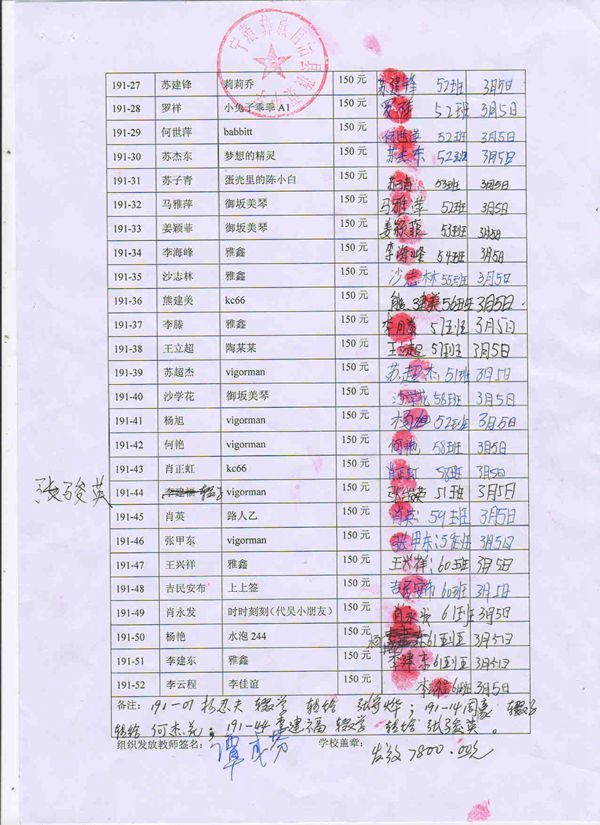 宁蒗彝族自治县
191-27 苏建锋 莉莉乔 150 元 苏建锋 52班 3月5日
191-28 罗祥 小兔子乖乖 A1 150 元 罗祥 52班 3月5日
191-29 何世萍 babbitt 150 元 何世萍 52班 3月5日
191-30 苏杰东 梦想的精灵 150 元 苏杰东 52班 3月5日
191-31 苏子青 蛋壳里的陈小白 150 元 苏子青 53班 3月5日
191-32 马雅萍 御坂美琴 150 元 马雅萍 52班 3月5日
191-33 姜颖菲 御坂美琴 150 元 姜颖菲 53班 3月5日
191-34 李海峰 雅鑫 150 元 李海峰 54班 3月5日
191-35 沙志林 雅鑫 150 元 沙志林 55班 3月5日
191-36 熊建美 kc66 150 元 熊建美 56班 3月5日
191-37 李滕 雅鑫 150 元 李滕 57班 3月5日
191-38 王立超 陶某某 150 元 王立超 57班 3月5日
191-39 苏超杰 vigorman 150 元 苏超杰 51班 3月5日
191-40 沙学花 御坂美琴 150 元 沙学花 58班 3月5日
191-41 杨旭 vigorman 150 元 杨旭 52班 3月5日
191-42 何艳 vigorman 150 元 何艳 58班 3月5日
191-43 肖正虹 kc66 150 元 肖正虹 58班 3月5日
张骏英 191-44 李建福 vigorman 150 元 张骏英 51班 3月5日
191-45 肖英 路人乙 150 元 肖英 59班 3月5日
191-46 张甲东 vigorman 150 元 张甲东 59班 3月5日
191-47 王兴祥 雅鑫 150 元 王兴祥 60班 3月5日
191-48 吉民安布 上上签 150 元 吉民安布 60班 3月5日
191-49 肖永发 时时刻刻（代吴小朋友） 150 元 肖永发 61班 3月5日
191-50 杨艳 水泡 244 150元 杨 61班 3月5日
191-51 李建东 雅鑫 150 元 李建东 61班 3月5日
191-52 李云程 李佳谊 150 元 李 61班 3月5日
备注：191-01 辍学 转给 张 ；191-14 周豪 辍学
转给 何杰花；191-44 李建福 辍学 转给 张骏英。
组织发放教师签名： 谭 芬 学校盖章： 发放 7800.00元